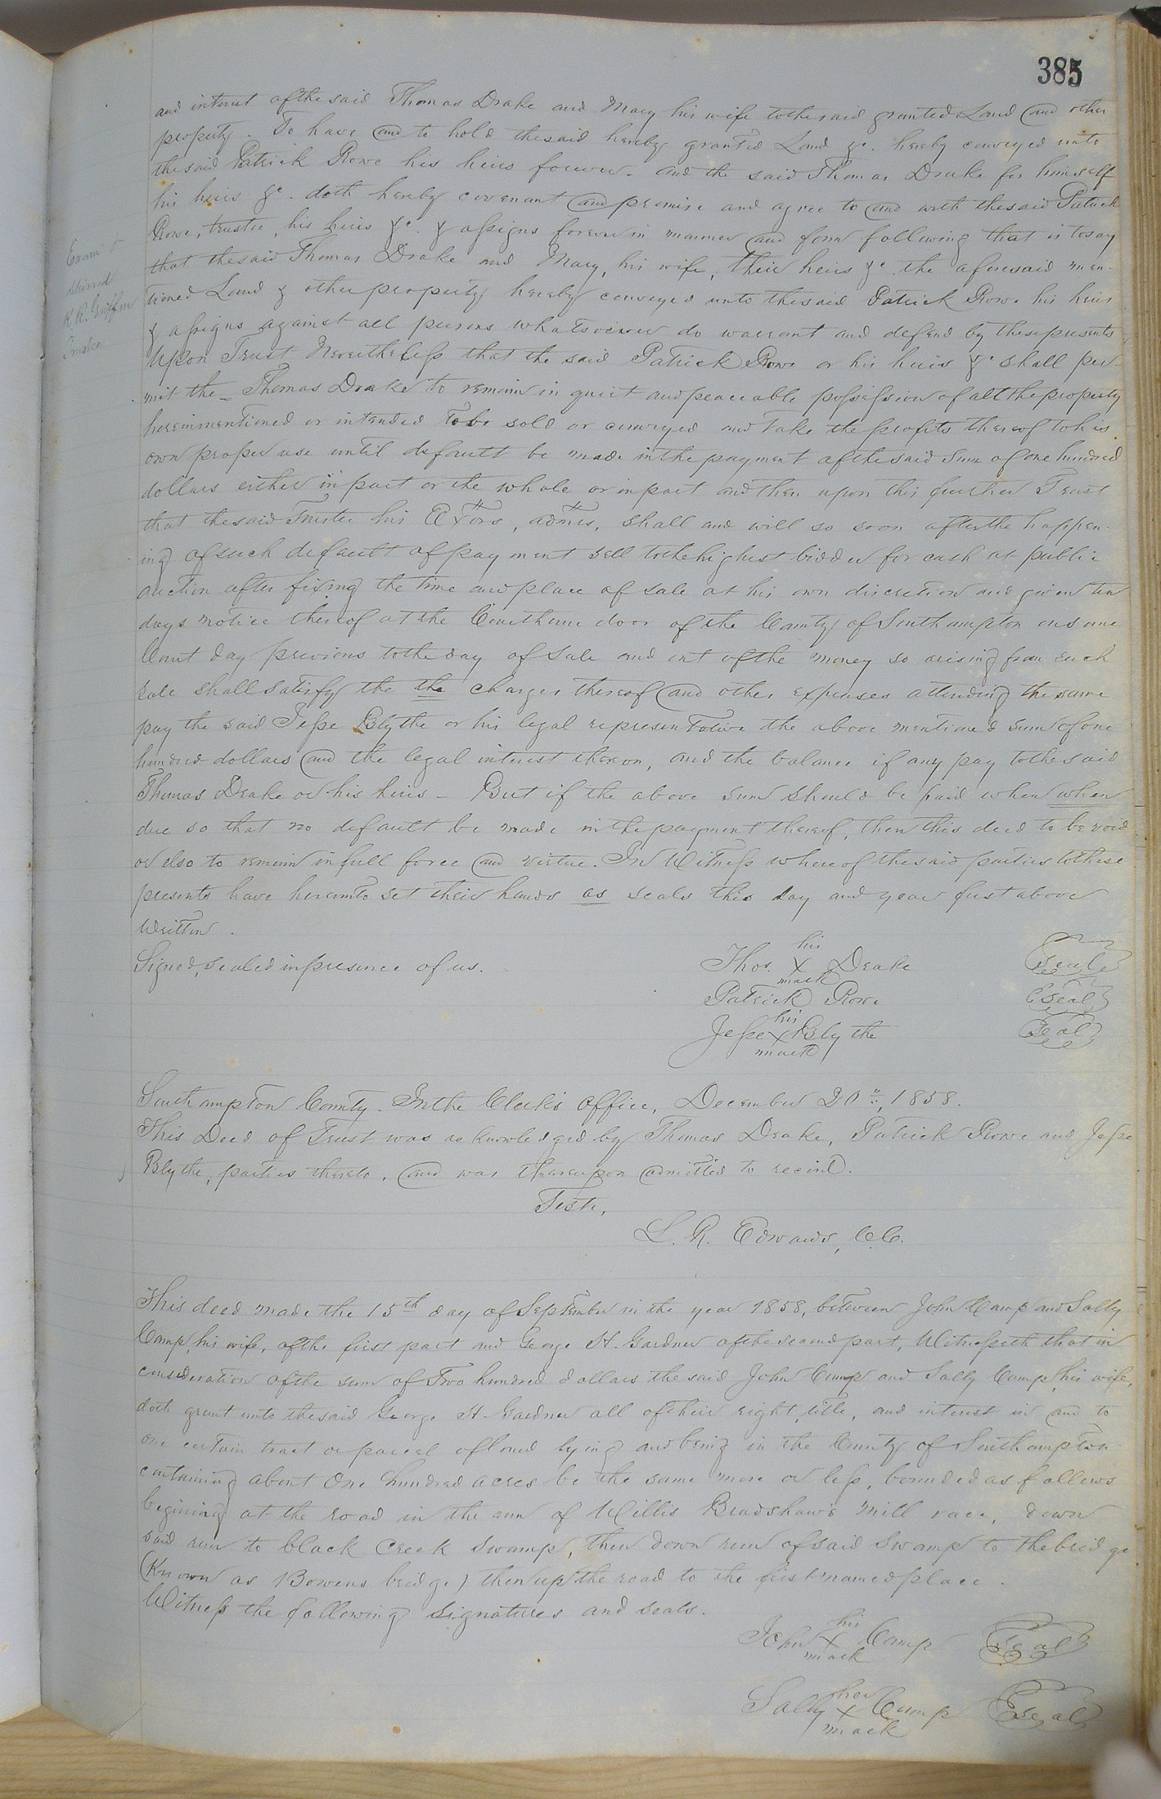 385
and interest of the said Thomas Drake and Mary his wife to the said granted Land and other
property. To have and to hold the said hereby granted Land &c. hereby conveyed unto
the said Patrick Rowe his heirs forever. And the said Thomas Drake for himself
his heirs &c. doth hereby covenant and promise and agree to and with the said Patrick
Rowe, trustee, his heirs &c. & assigns forever in manner and form following that is to say
that the said Thomas Drake and Mary, his wife, their heirs &c. the aforesaid men-
tioned Land & other property hereby conveyed unto the said Patrick Rowe his heirs
& assigns against all persons whatsoever do warrant and defend by these presents
Upon Trust Nevertheless that the said Patrick Rowe or his heirs &c shall per-
mit the Thomas Drake to remain in quiet and peaceable possession of all the property
hereinmentioned or intended to be sold or conveyed and take the profits thereof to his
own proper use until default be made in the payment of the said Sum of one hundred
dollars either in part or the whole or in part and then upon this further Trust
that the said Trustee his Extors, admrs, shall and will so soon after the happen-
ing of such default of payment sell to the highest bidder for cash at public
auction after fixing the time and place of sale at his own discretion and given ten
days notice thereof at the Courthouse door of the County of Southampton on some
Court day previous to the day of Sale and out of the money so arising from such
sale shall satisfy the the charges thereof and other expenses attending the same
pay the said Jesse Blythe or his legal representative the above mentioned sum of one
hundred dollars and the legal interest thereon, and the balance if any pay to the said
Thomas Drake or his heirs - But if the above Sum should be paid when when
due so that no default be made in the payment thereof, then this deed to be void
or else to remain in full force and virtue. In Witness whereof the said parties to these
presents have hereunto set their hands as seals this day and year first above
written.
Signed, sealed in presence of us.
his
Thos. X Drake Seal
mark
Patrick Rowe Seal
his
Jesse X Blythe Seal
mark
Exam'd
K. R. Griffin
Trustee
Southampton County. In the Clerk's office, December 20th, 1858.
This Deed of Trust was acknowledged by Thomas Drake, Patrick Rowe and Jesse
Blythe, parties thereto, and was thereupon admitted to record.
Teste,
L. R. Edwards, C.C.
This deed made the 15th day of September in the year 1858, between John Camp and Sally
Camp, his wife, of the first part and George H. Gardner of the second part, Witnesseth that in
consideration of the sum of Two hundred dollars the said John Camp and Sally Camp, his wife,
doth grant unto the said George H. Gardner all of their right, title, and interest in and to
one certain tract or parcel of land lying and being in the County of Southampton
containing about One hundred acres be the same more or less, bounded as follows
begining at the road in the run of Willis Bradshaw's mill race, down
said run to black Creek Swamp, then down run of said swamp to the bridge
(Known as Bowens bridge) then up the road to the first named place.
Witness the following signatures and seals.
his
John X Camp Seal
mark
her
Sally X Camp Seal
mark